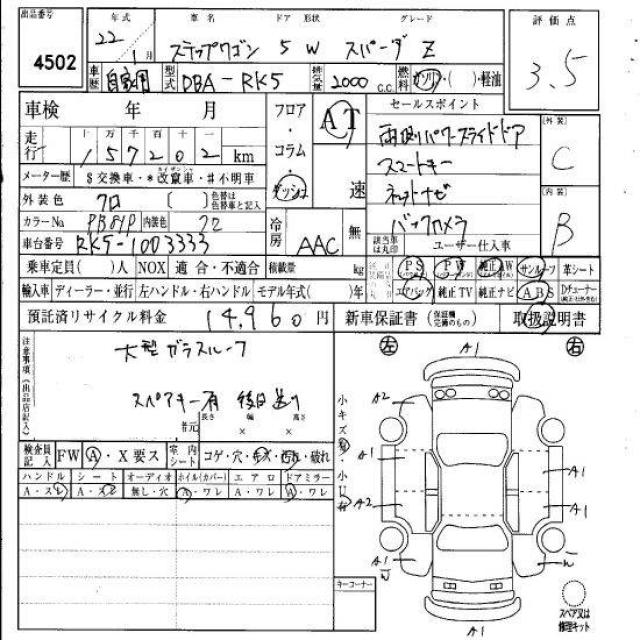 出品番号 年式 車名 ドア 形状 グレード 評価点
4502 22 ステップワゴン 5 W スパーダ Z 3.5
1月
車歴 自家用 型式 DBA-RK5 排気量 2000 c.c. 燃料 ガソリン・( )・軽油
車検 年 月 フロア・コラム・ダッシュ AT速 セールスポイント 【外装】
走行 十万千百十一 両側パワースライドドア C
157202 km スマートキー
メーター歴 $交換車・*改竄車・#不明車 ネットナビ 【内装】
外装色 クロ ( ) 色替は色替車と記入 バックカメラ B
カラーNo PB81P 内装色 クロ 冷房 AAC 無 該当車は丸印 ユーザー仕入車
車台番号 RK5-1003333
乗車定員( )人 NOX 適合・不適合 積載量 kg PS PW 純正AW サンルーフ 革シート
輸入車 ディーラー・並行 左ハンドル・右ハンドル モデル年式( )年 エアバッグ 純正TV 純正ナビ ABS Dチューナー
預託済リサイクル料金 14,960円 新車保証書 (保証欄完備のもの) 取扱説明書
注意事項(出品店記入) 大型ガラスルーフ
スペアキー有 後日送り
長さ 幅 高さ
× ×
検査員記入 FW A・X要ス 室内シート コゲ・穴・キズ・汚れ・破れ
ハンドル シート オーディオ ホイル(カバー) エアロ ドアミラー
A・スレ A・スレ 無し・穴 A・ワレ A・ワレ A・ワレ
キーコーナー
左 A1 右
A2
小キズ多 小凹多
A1 A1
A2 A1
A1 W W
A1
スペア又は修理キット